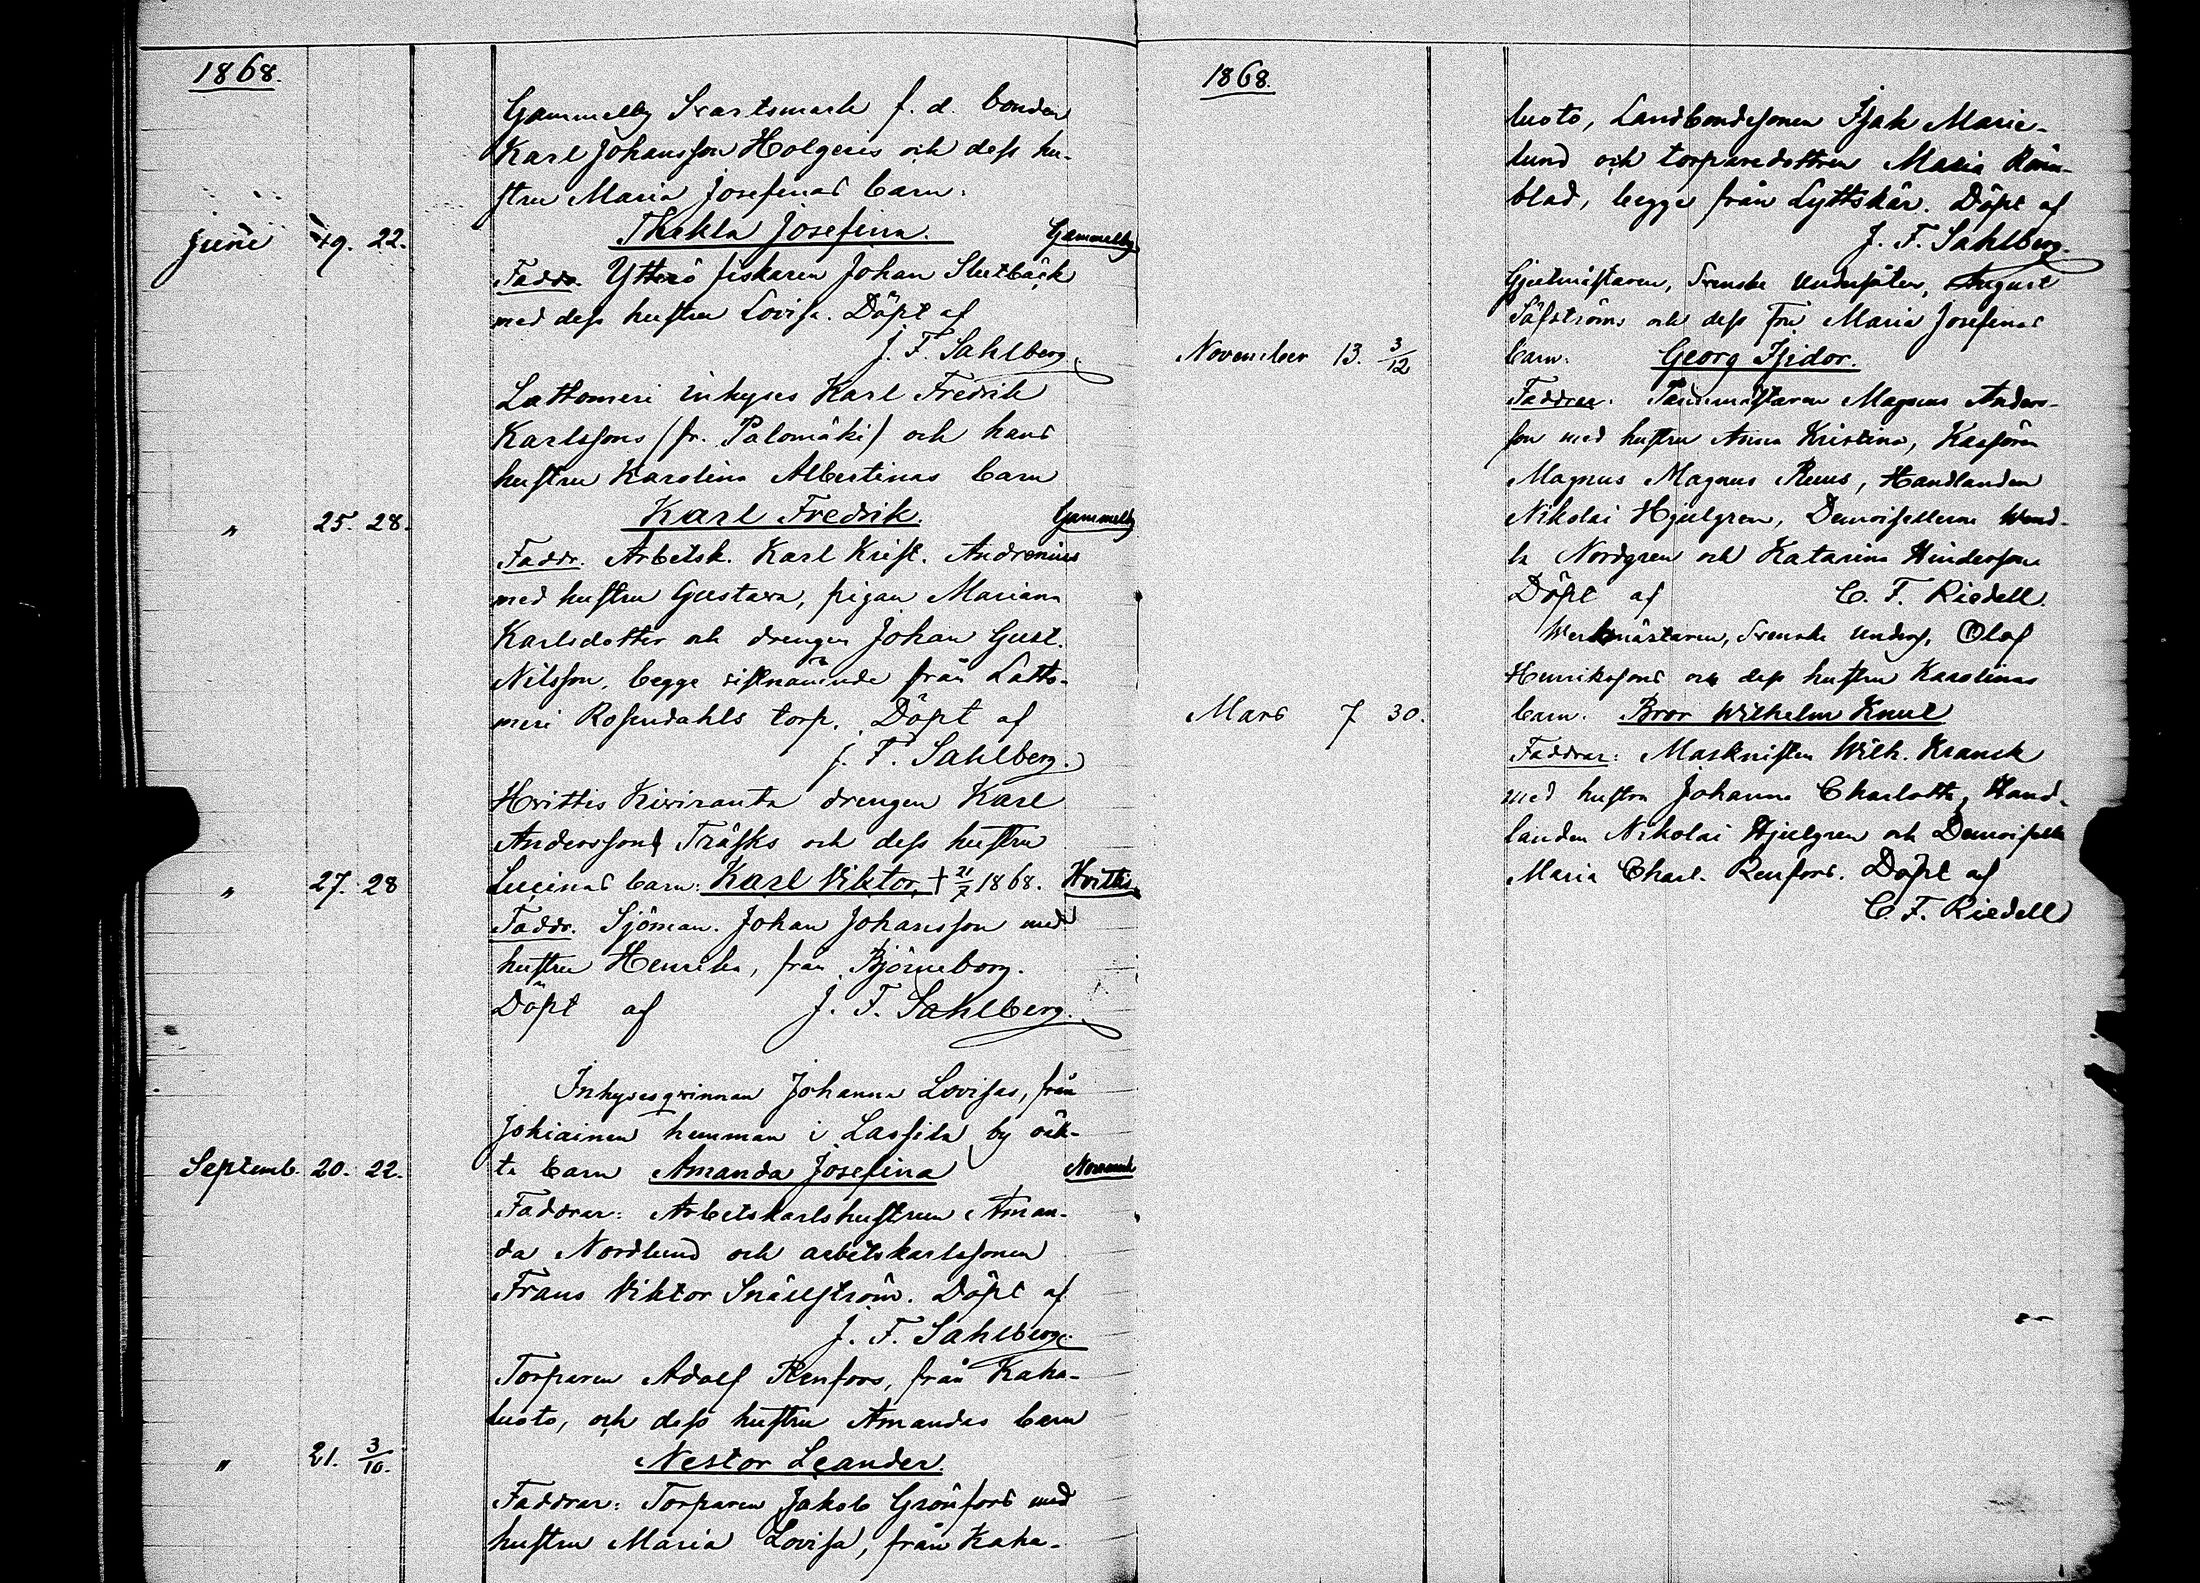 1868.
Gammelby Svartsmark f. d. bonden
Karl Johansson Holgeris och dess hu-
stru Maria Josefinas barn:
Juni 19. 22. Thekla Josefina. Gammelby
Faddr. Ytterö fiskaren Johan Slutbäck
med dess hustru Lovisa. Döpt af
J. F. Sahlberg.
Lattomeri inhyses Karl Fredrik
Karlssons (fr. Palomäki) och hans
hustru Karolina Albertinas barn
" 25. 28. Karl Fredrik. Gammelby
Faddr. Arbetsk. Karl Krist. Andrenius
med hustru Gustava, pigan Mariana
Karlsdotter och drengen Johan Gust.
Nilsson, begge sistnämnde från Latto-
meri Rosendahls torp. Döpt af
J. F. Sahlberg.
Hvittis Kiviranta drengen Karl
Anderssons Träsks och dess hustru
" 27. 28 Lucinas barn: Karl Viktor, + 21/7 1868. Hvittis
Faddr. Sjöman. Johan Johansson med
hustru Henrika, från Björneborg.
Döpt af J. F. Sahlberg.
Inhysesqvinnan Johanna Lovisas, från
Jokiainen hemman i Lassila by oäk-
Septemb. 20. 22. ta barn Amanda Josefina
Faddrar: Arbetskarlshustrun Aman-
da Nordlund och arbetskarlssonen
Frans Viktor Snällström. Döpt af
J. F. Sahlberg.
Torparen Adolf Renfors, från Kaha-
luoto, och dess hustru Amandas barn
" 21. 3/10. Nestor Leander.
Faddrar: Torparen Jakob Grönfors med
hustru Maria Lovisa, från Kaha-
1868.
luoto, Landbondesonen Isak Marie-
lund och torparedottren Maria Rönn-
blad, begge från Lyttskär. Döpt af
J. F. Sahlberg.
Gjutmästaren, Svenske Undersåten, August
Säfströms och dess Fru Maria Josefinas
November 13. 3/12 barn: Georg Isidor.
Faddrar: Magnus Anders-
son med hustru Anna Kristina, Kassören
Magnus Magnus Reuus, Handlanden
Nikolai Hjulgren, Demoisellerna Wend-
la Nordgren och Katarina Hinderson
Döpt af C. F. Riedell.
Werkmästaren, Svenske Unders, Olof
Henrikssons och dess hustru Karolinas
Mars 7 30. barn: Bror Wilhelm Knut
Faddrar: Masknisten Wilh. Kranck
med hustru Johanna Charlotta, Hand-
landen Nikolai Hjulgren och Demoiselle
Maria Charl. Renfors. Döpt af
C. F. Riedell